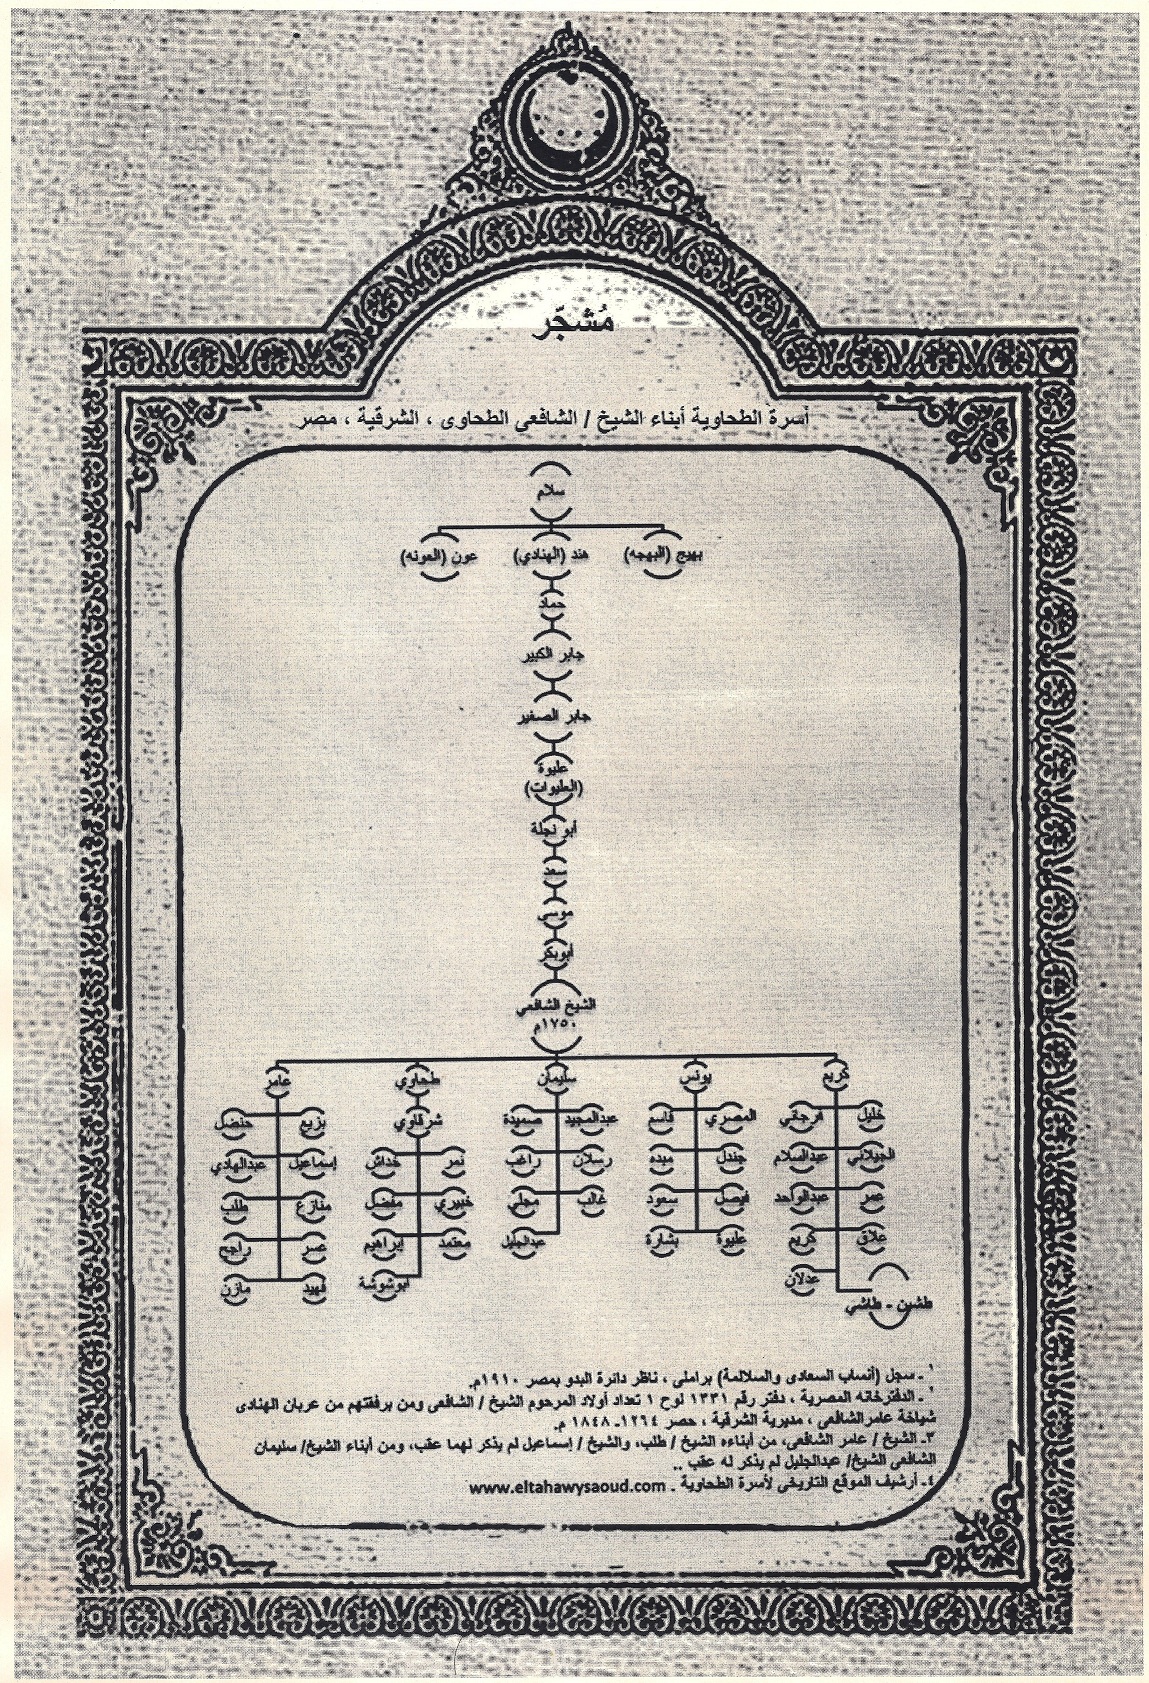 مُشجّر
أسرة الطحاوية أبناء الشيخ / الشافعى الطحاوى ، الشرقية ، مصر
سلام
بهيج (البهجه) هند (الهنادي) عون (العونه)
حماد
جابر الكبير
جابر الصغير
عليوة
(العليوات)
أبو نجلة
سعد
موسي
أبوبكر
الشيخ الشافعي
١٧٥٠م
كريم يونس سليمان طحاوي عامر
خليل مرجاني المصري قاسم عبدالمجيد صميدة شرقاوي بزيع حنضل
الجيلاني عبدالسلام جندل ميدر رسلان راغب نمر خداش إسماعيل عبدالهادي
عمر عبدالواحد فيصل سعود غالب مجلي خبيري مفضل منازع طلب
علاق كريم عليوة بشارة عبدالجليل معتمد إبراهيم عمر راجح
عدلان أبوشوشة فهيد مازن
طشين - طاشي
١ـ سجل (أنساب السعادى والسلالمة) براملى ، ناظر دائرة البدو بمصر ١٩١٠م.
٢ـ الدفترخانه المصرية ، دفتر رقم ١٣٣١ لوح ١ تعداد أولاد المرحوم الشيخ / الشافعى ومن برفقتهم من عربان الهنادى
شياخة عامرالشافعى ، مديرية الشرقية ، حصر ١٢٦٤ـ ١٨٤٨ م.
٣ـ الشيخ / عامر الشافعى، من أبناءه الشيخ / طلب، والشيخ / إسماعيل لم يذكر لهما عقب، ومن أبناء الشيخ/ سليمان
الشافعى الشيخ/ عبدالجليل لم يذكر له عقب ..
٤ـ أرشيف الموقع التاريخى لأسرة الطحاوية ـ www.eltahawysaoud.com